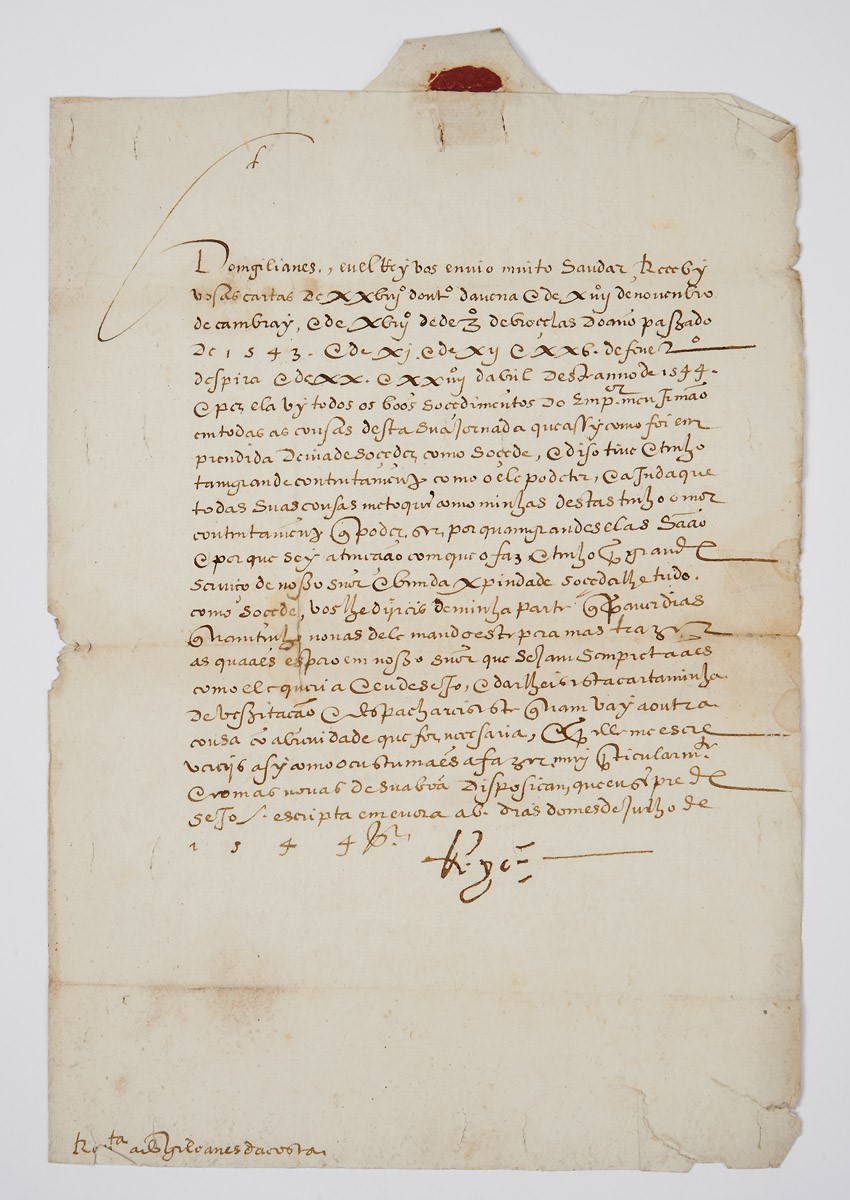 Dom gilianes, eu elRey vos envio muito saudar Recebj
vosas cartas de xxbiijº doutº davena e de xiiij de nouenbro
de cambray, e de xbiijº de dezº de brocelas do ano pasado
de 1543. e de xj e de xij e xxb. de feueRº
despira e de xx. e xxiiij dabril destanno de 1544.
e per ela vy todos os boõs socedimentos do Empor meu Jrmão
em todas as cousas desta sua Jornada que assy como foi em
prendida devia de soceder, como socede, e diso tiue e tenho
tam grande contentamento como o ele pode ter, e ainda que
todas suas cousas me toquem como minhas destas tenho o mor
contentamento que poder ser, por quam grandes elas saão
e por que sey a tencaão com que o faz e tenho por grande
seruiço de noso snõr e bem da xpindade soceda lhe tudo.
como socede, vos lhe dijreis de minha parte que por auer dias
que nam tenho novas dele mando este pera mas trazer
as quaaes espero em noso snõr que sejam sempre taaes
como ele queria e eu desejo, e darlheis esta carta minha
de vesitacão e despachareis este que nam vay a outra
cousa cõ abreuidade que for necesaria, e por elle me escre
vereijs asy como ocustumaes a fazer muj particularmte
e com as novas de sua boa disposicam, que eu sempre de
sejo. escripta em evora a b. dias do mes de Junho de
1544
Rey
Repta a dom gileanes dacosta